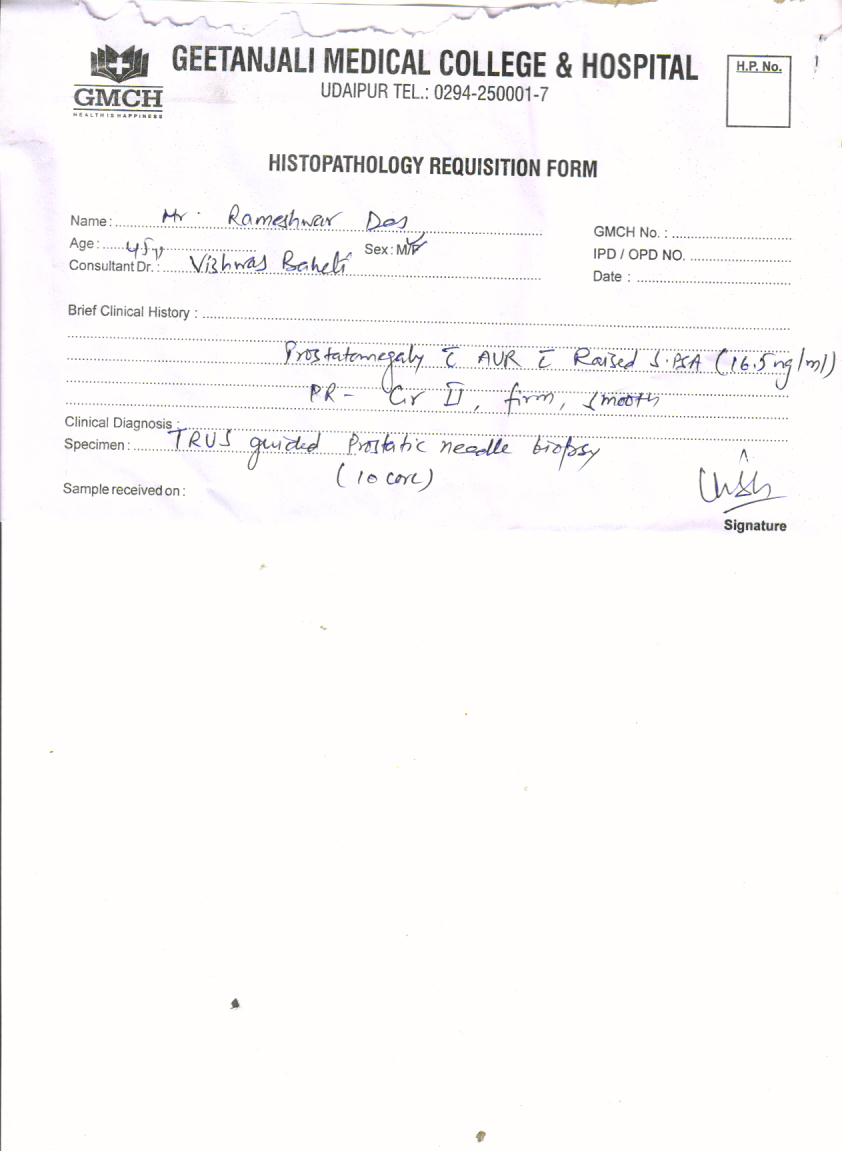 GEETANJALI MEDICAL COLLEGE & HOSPITAL
UDAIPUR TEL.: 0294-250001-7
GMCH
HEALTH IS HAPPINESS
H.P. No.
HISTOPATHOLOGY REQUISITION FORM
Name : Mr. Rameshwar Das
GMCH No. :
Age : 45y Sex : M/F
IPD / OPD NO.
Consultant Dr. : Vishwas Baheti
Date :
Brief Clinical History :
Prostatomegaly c̄ AUR c̄ Raised S.PSA (16.5 ng/ml)
PR - Gr II, firm, smooth
Clinical Diagnosis :
Specimen : TRUS guided Prostatic needle biopsy
(10 core)
Sample received on :
Signature